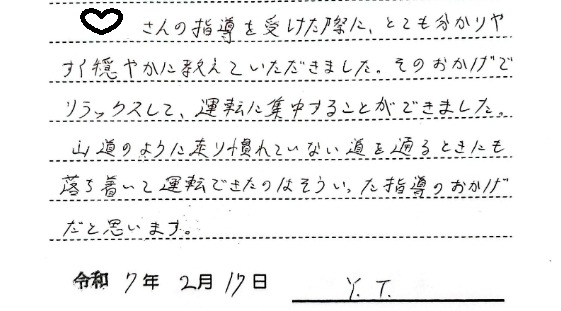 さんの指導を受けた際に、とても分かりや
すく穏やかに教えていただきました。そのおかげで
リラックスして、運転に集中することができました。
山道のように走り慣れていない道を通るときにも
落ち着いて運転できたのはそういった指導のおかげ
だと思います。
令和 7年 2月 17日 Y. T.